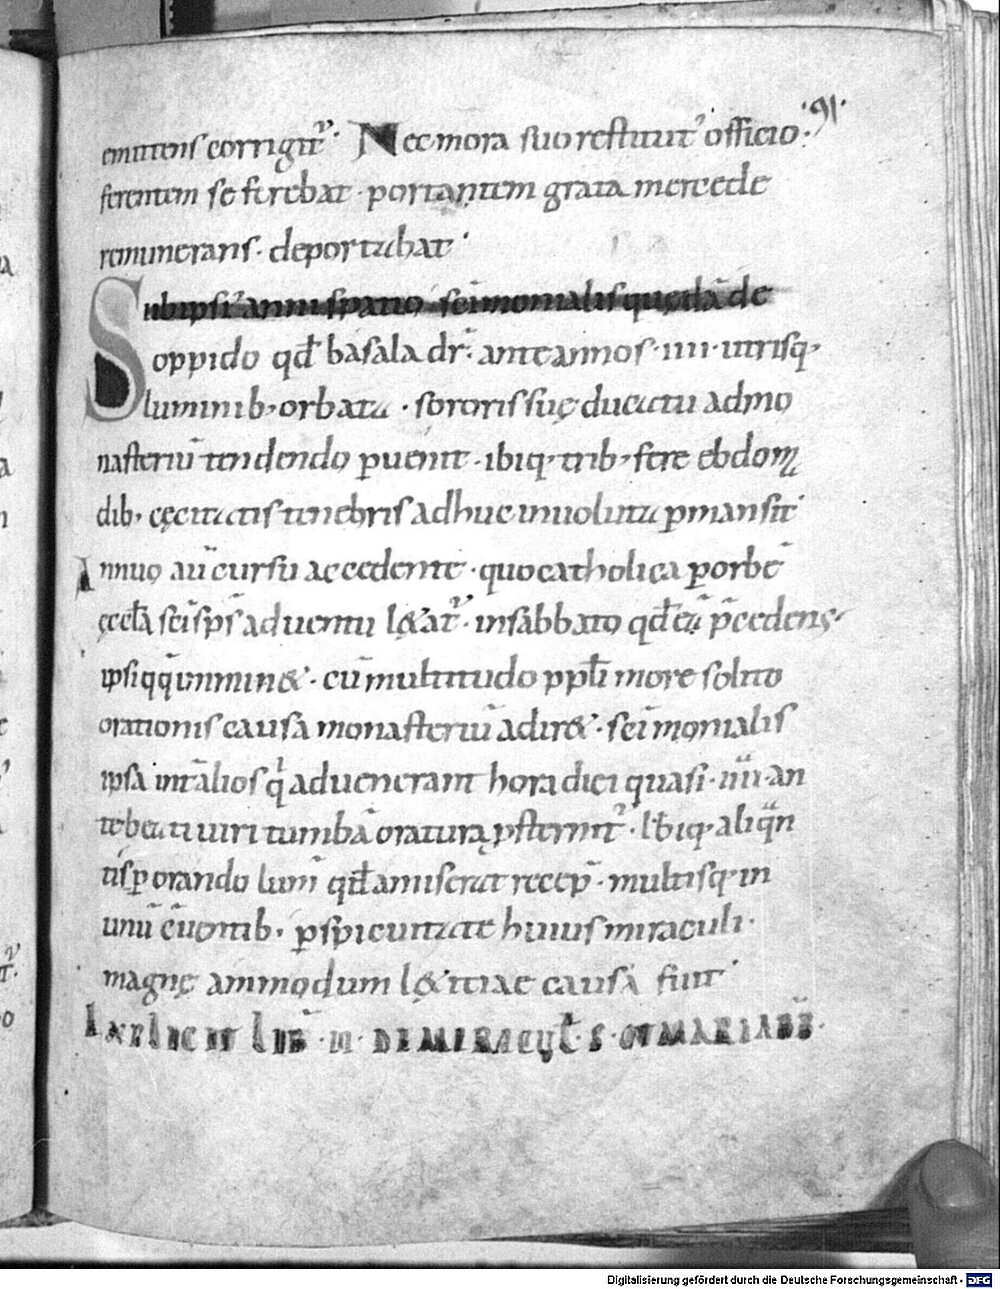 ·91·
emittens corrigit᷑. Nec mora suo restituit᷑ officio.
ferentem se ferebat. portantem grata mercede
remunerans. deportabat.
Sub ipsi᷑ anni spatio sc̄imonialis quędā de
oppido qđ basala dr̄. ante annos .iiii. utrisq;
luminib; orbata. sororis suę ducatu ad mo
nasteriū tendendo ꝑuenit. ibiq; trib; fere ebdom̄
dib; cęcitatis tenebris adhuc inuoluta ꝑmansit.
Innuo aū cursu accedente. quo catholica ꝑ orbē
ęccl̄a sc̄i sp̄s aduentu l&at᷑. in sabbato qđ eū p̄cedens
ipsi qq̄ imminet. cū multitudo ppl̄i more solito
orationis causa monasteriū adir&. sc̄imonialis
ipsa int̄ alios qͥ aduenerant hora diei quasi .iiii. an
te beati uiri tumbā oratura ꝓsternit᷑. Ibiq; aliqͣn
tisꝑ orando lum̄ qđ amiserat recep̄. multisq; in
unū c̄uentib; ꝑspicuitate huius miraculi.
magnę ammodum l&itiae causa fuit.
EXPLICIT LIB̄ .II. DE MIRACUL̄ S. OTMARI ABB̄.
Digitalisierung gefördert durch die Deutsche Forschungsgemeinschaft - DFG